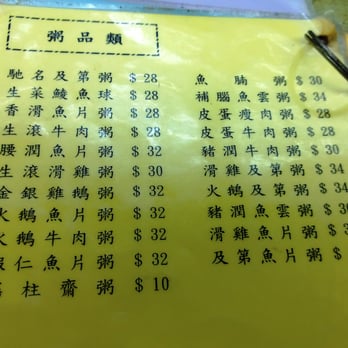 粥品類
馳名及第粥 $28
生菜鯪魚球 $28
香滑魚片粥 $28
生滾牛肉粥 $28
腰潤魚片粥 $32
生滾滑雞粥 $30
金銀雞鵝粥 $32
火鵝魚片粥 $32
火鵝牛肉粥 $32
蝦仁魚片粥 $32
柱齋粥 $10
魚腩粥 $30
補腦魚雲粥 $34
皮蛋瘦肉粥 $28
皮蛋牛肉粥 $28
豬潤牛肉粥 $30
滑雞及第粥 $34
火鵝及第粥 $34
豬潤魚雲粥 $
滑雞魚片粥 $
及第魚片粥 $